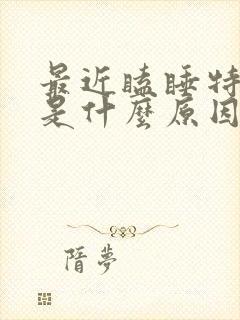 最近瞌睡特
是什麼原因
隋夢